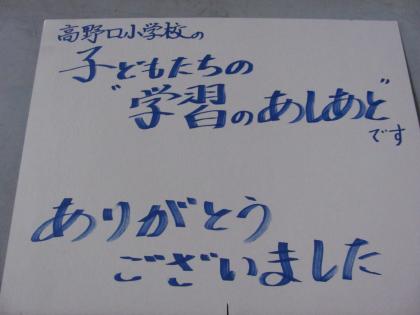 高野口小学校の
子どもたちの
"学習のあしあと"
です
ありがとう
ございました